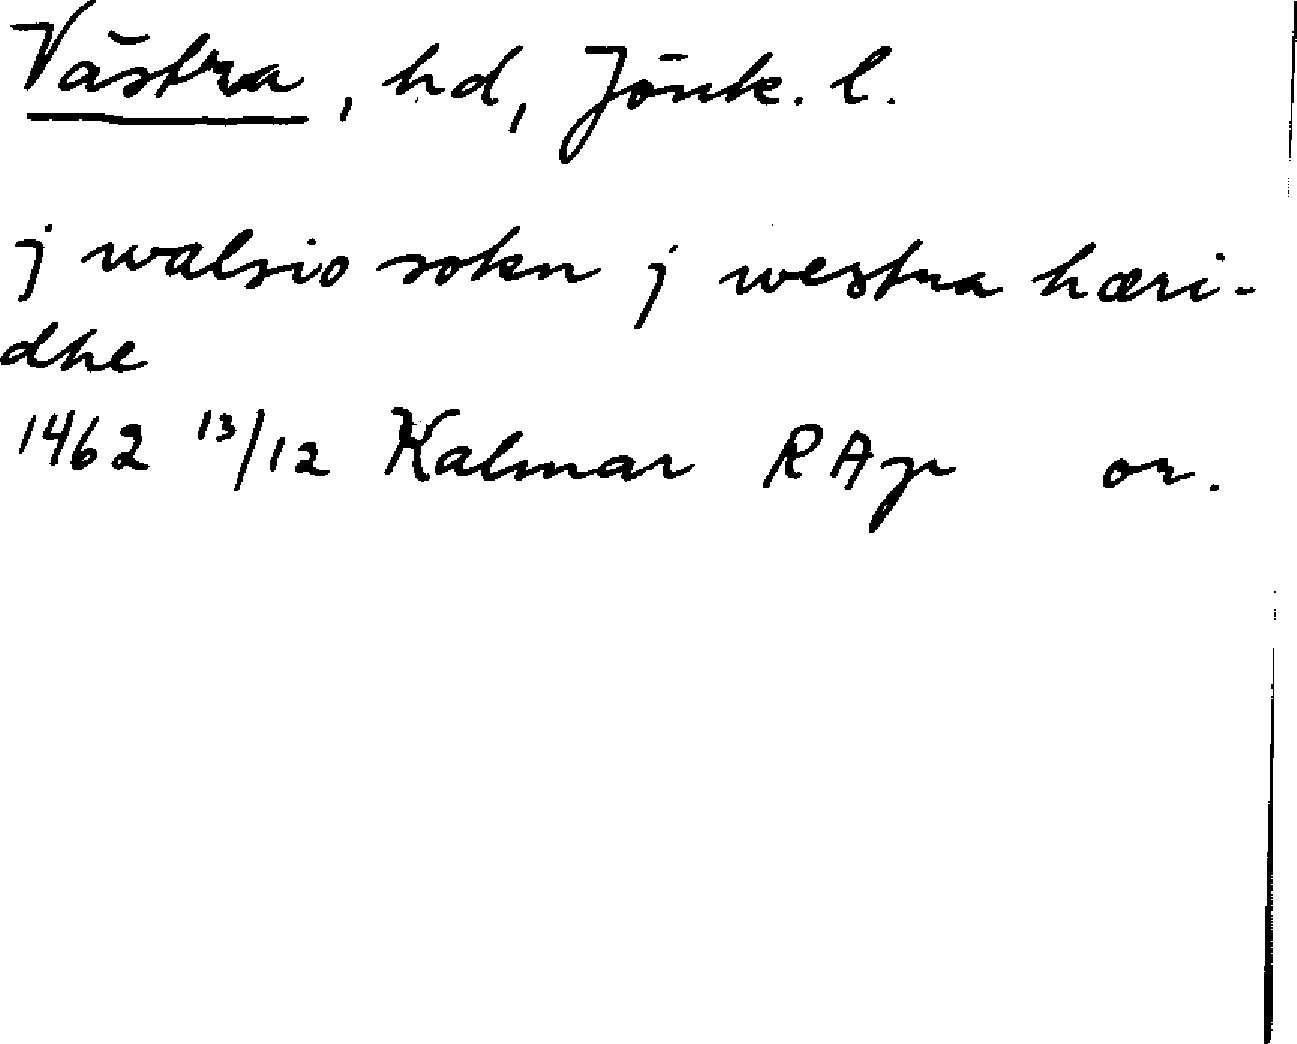 Västra, hd, Jönk. l.
j walsio sokn j westra hæri-
dhe
1462 13/12 Kalmar RAp or.